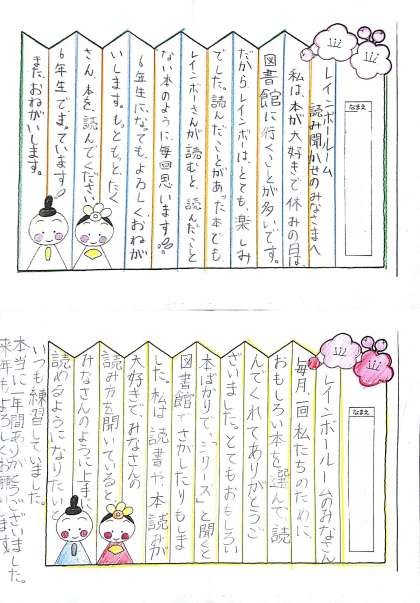 なまえ
レインボールーム
読み聞かせのみなさまへ
私は、本が大好きで休みの日は、
図書館に行くことが多いです。
だからレインボーは、とても、楽しみ
でした。読んだことがあった本でも、
レインボーさんが読むと、読んだこと
ない本のように毎回思います。
6年生になっても、よろしくおねが
いします。もっともっと、たく
さん、本を、読んでください。
6年生でまっています。
また、おねがいします。
なまえ
レインボールームのみなさん
毎月一回私たちのために、
おもしろい本を選んで、読
んでくれてありがとうご
ざいました。とてもおもしろい
本ばかりで、「シリーズ」と聞くと
図書館でさがしたりもしま
した。私は読書や本読みが
大好きでみなさんの
読み方を聞いていると
みなさんのように上手に
読めるようになりたいと
いつも練習していました。
本当に一年間ありがとうございました。
来年もよろしくお願いします。